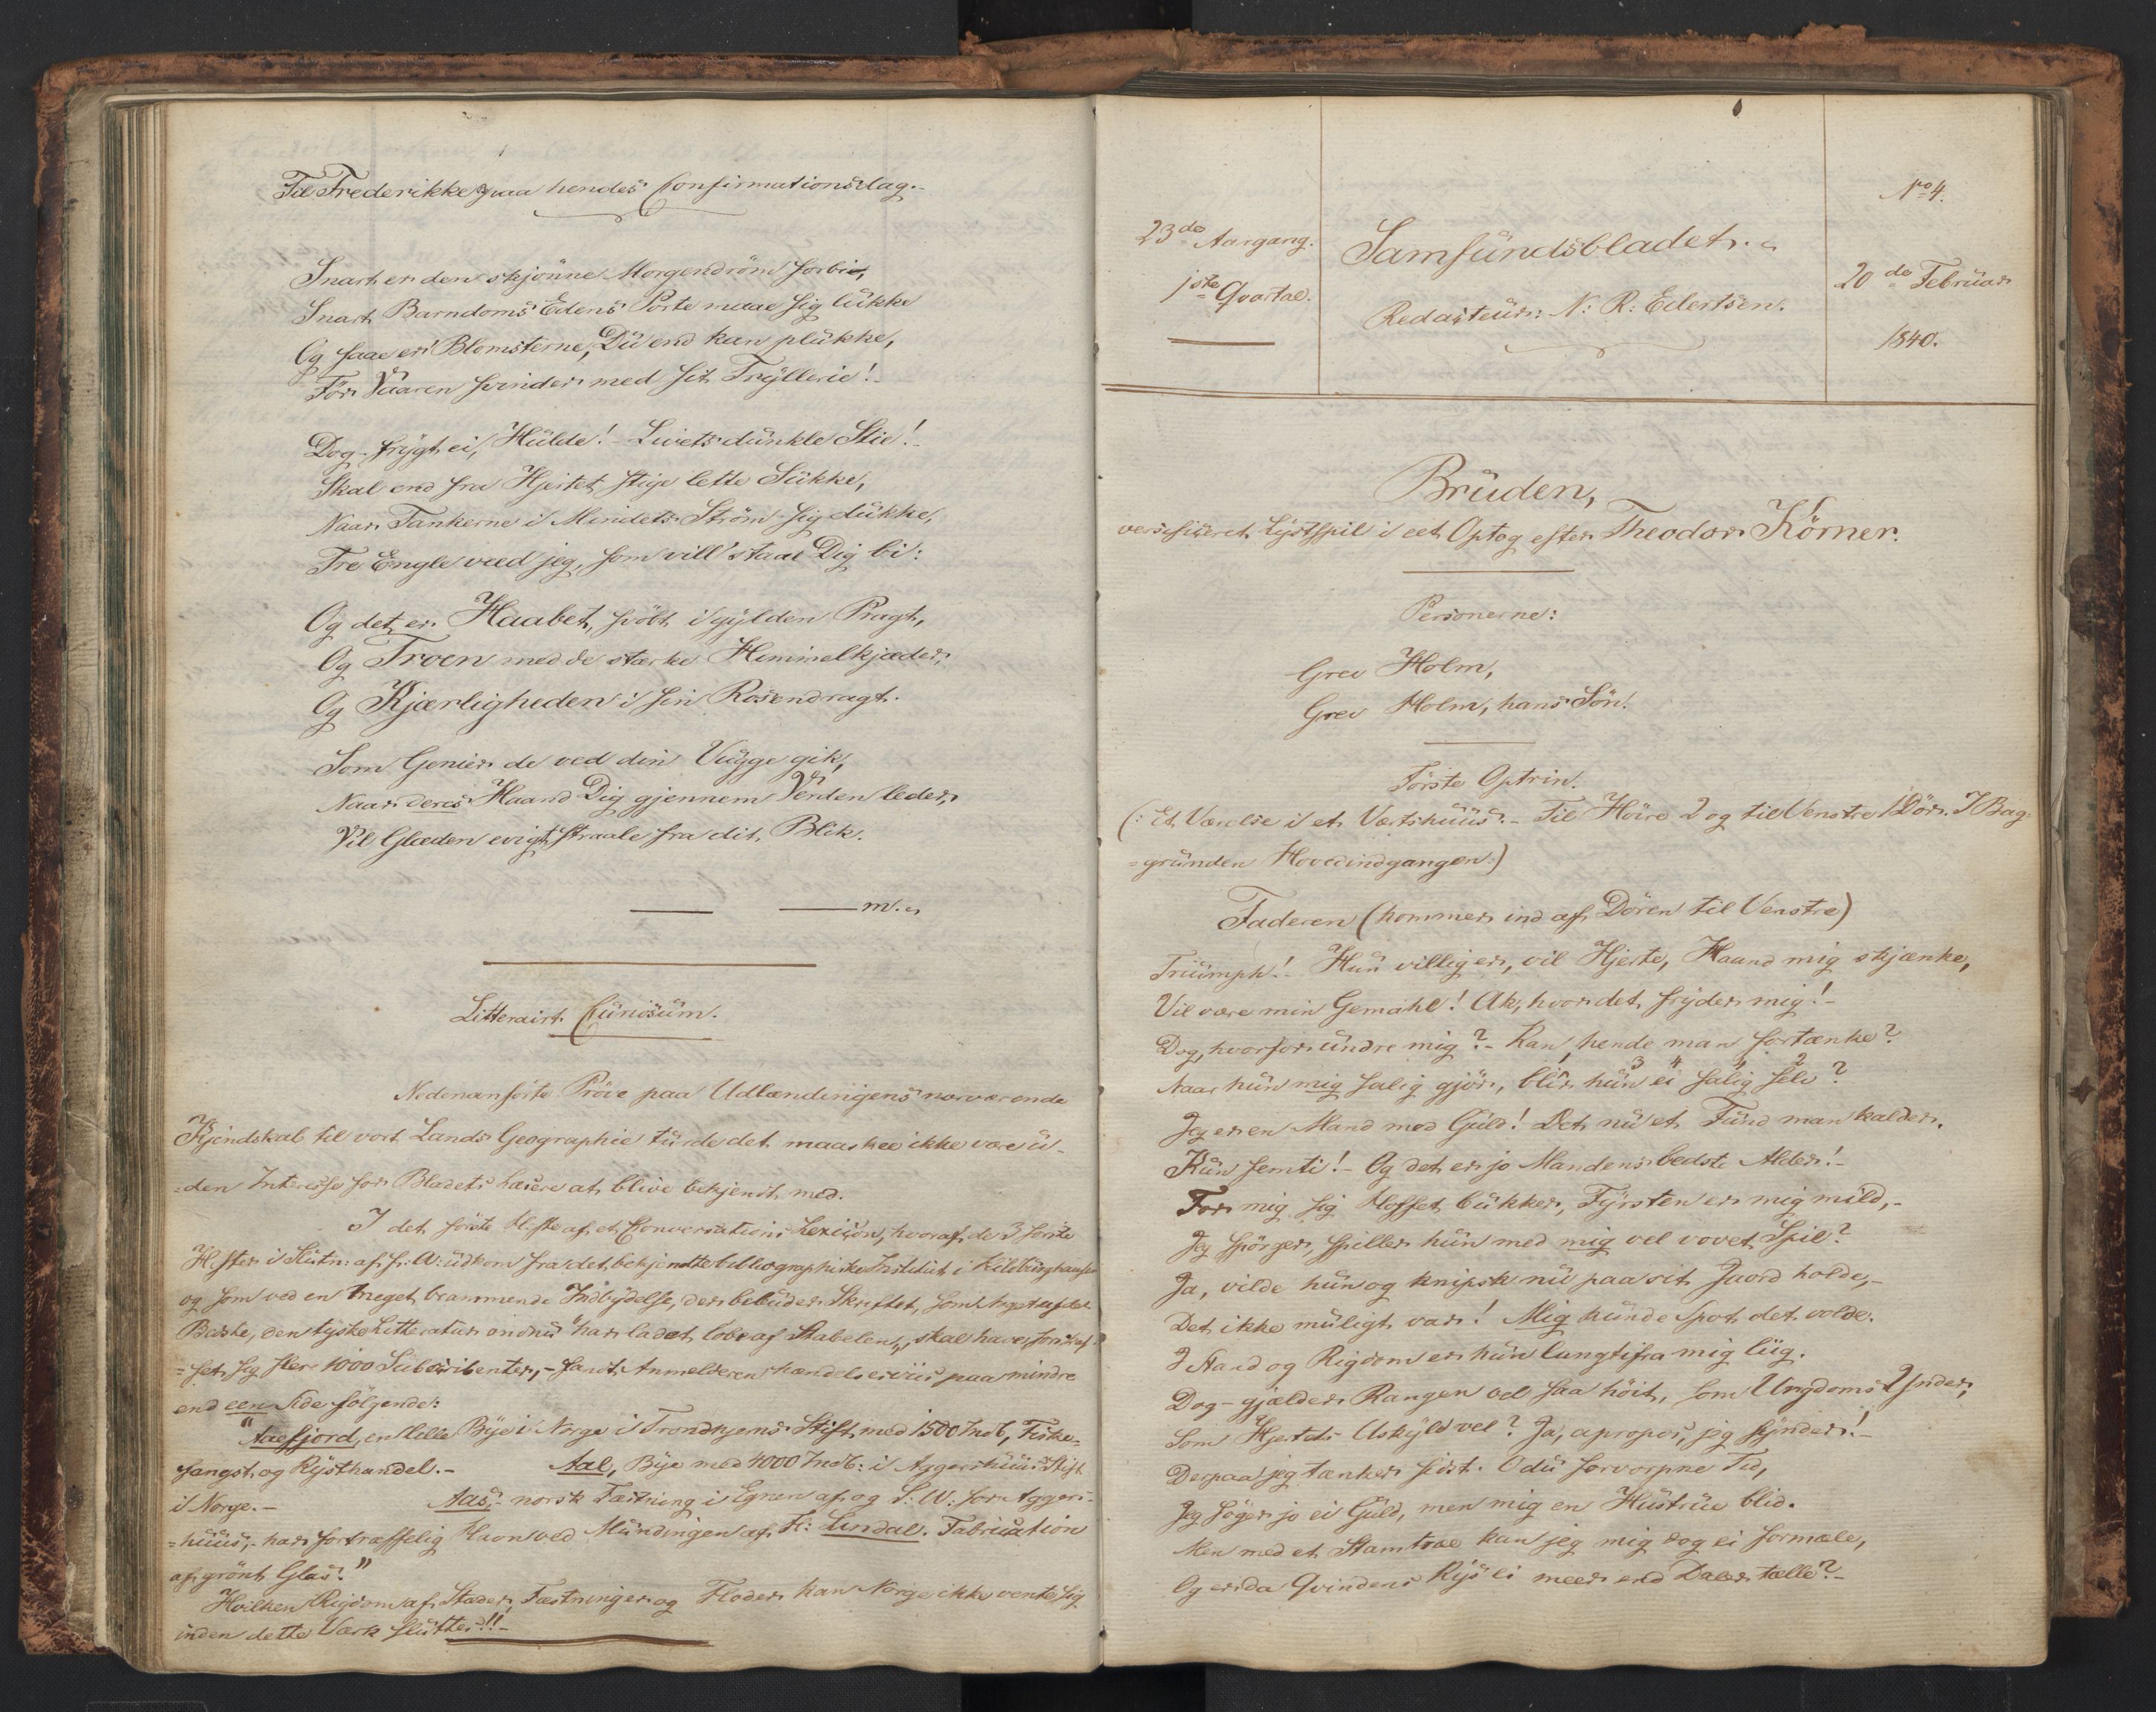 Til Frederikke paa hendes Confirmationsdag.
Snart er den skjönne Morgendröm forbi,
Snart Barndoms Edens Porte maae sig lukke
Og faae er' Blomsterne, Du end kan plukke,
Før Vaaren svinder med sit Tryllerie!
Dog - frygt ei, Hulde! - Livets dunkle Stie!
Skal end fra Hjertet stige lette Sukke,
Naar Tankerne i Mindets Ström sig dukke,
Tre Engle veed jeg, som vill' staae Dig bi:
Og det er Haabet, svöbt i gylden Pragt,
Og Troen med de stærke Himmelkjæder,
Og Kjærligheden i sin Rosendragt.
Som Genier de ved din Vugge gik,
Naar deres Haand Dig gjennem Verden leder,
Vil Glæden evigt straale fra dit Blik.
— — m.
Litterairt Curiosum.
Nedenanførte Pröve paa Udlændingens nærværende
Kjendskab til vort Lands Geographie turde det maaskee ikke være u-
=den Interesse for Bladets Læsere at blive bekjendt med.
I det förste Hefte af et Conversations Lexicon, hvoraf de 3 förste
Hefter i Slutn: af f: A: udkom fra det bekjendte bibliographiske Institut i Hildburghausen
og som ved en meget brammende Indbydelse, der bebuder Skriftet, som det
Bedste, den tyske Litteratur endnu "har ladet löbe af Stabelen", skal have forskaf-
=fet sig flere 1000 Subscribenter, - fandt Anmelderen hændelseviis paa mindre
end een Side fölgende:
"Aaefjord, en lille Bye i Norge i Trondhjems Stift, med 1500 Indb, Fiske-
fangst og Kysthandel. - Aal, Bye med 4000 Indb: i Aggershuus Stift
i Norge. - Aas, - norsk Fæstning i Egnen af og S: W: for Aggers-
=huus, - har fortræffelig Havn ved Mundingen af Fl: Lindal. Fabrication
af grönt Glas."
Hvilken Rigdom af Stæder, Fæstninger og Floder kan Norge ikke vente sig
inden dette Værk sluttes!!! -
23de Aargang.
1ste Qvartal.
Samfundsbladet.
Redacteur: N: R: Eilertsen.
No 4.
20de Februar
1840.
Bruden,
versificeret Lystspil i eet Optog efter Theodor Körner.
Personerne:
Grev Holm,
Grev Holm, hans Sön.
Förste Optrin.
(: Et Værelse i et Vertshuus. - Til Höire 2 og til Venstre 1 Dör. I Bag-
=grunden Hovedindgangen:)
Faderen (kommer ind af Dören til Venstre)
Triumph! Hun villig er, vil Hjerte, Haand mig skjænke,
Vil være min Gemahl! Ak, hvor det fryder mig! -
Dog, hvorfor undre mig? - Kan hende man fortænke?
1 3 4 2
Naar hun mig salig gjör, blir hun ei salig selv?
Jeg er en Mand med Guld! Det nu et Fund man kalder.
Kun femti! - Og det er jo Mandens bedste Alder! -
For mig sig Hoffet bukker, Fyrsten er mig mild, -
Jeg spörger, spiller hun med mig vel vovet Spil?
Ja, vilde hun og knipsk nu paa sit Jaord holde, -
Det ikke muligt var! Mig kunde Spot det volde.
I Stand og Rigdom er hun langtifra mig liig.
Dog - gjælder Rangen vel saa höit, som Ungdoms Ynder,
Som Hjertets Uskyld vel? Ja, apropos, jeg skynder! -
Derpaa jeg tænker sidst. O du forvorpne Tid,
Jeg söger jo ei Guld, men mig en Hustrue blid.
Men med et Stamtræe kan jeg mig dog ei formæle,
Og er da Qvindens Kys ei meer end Daler tælle? -